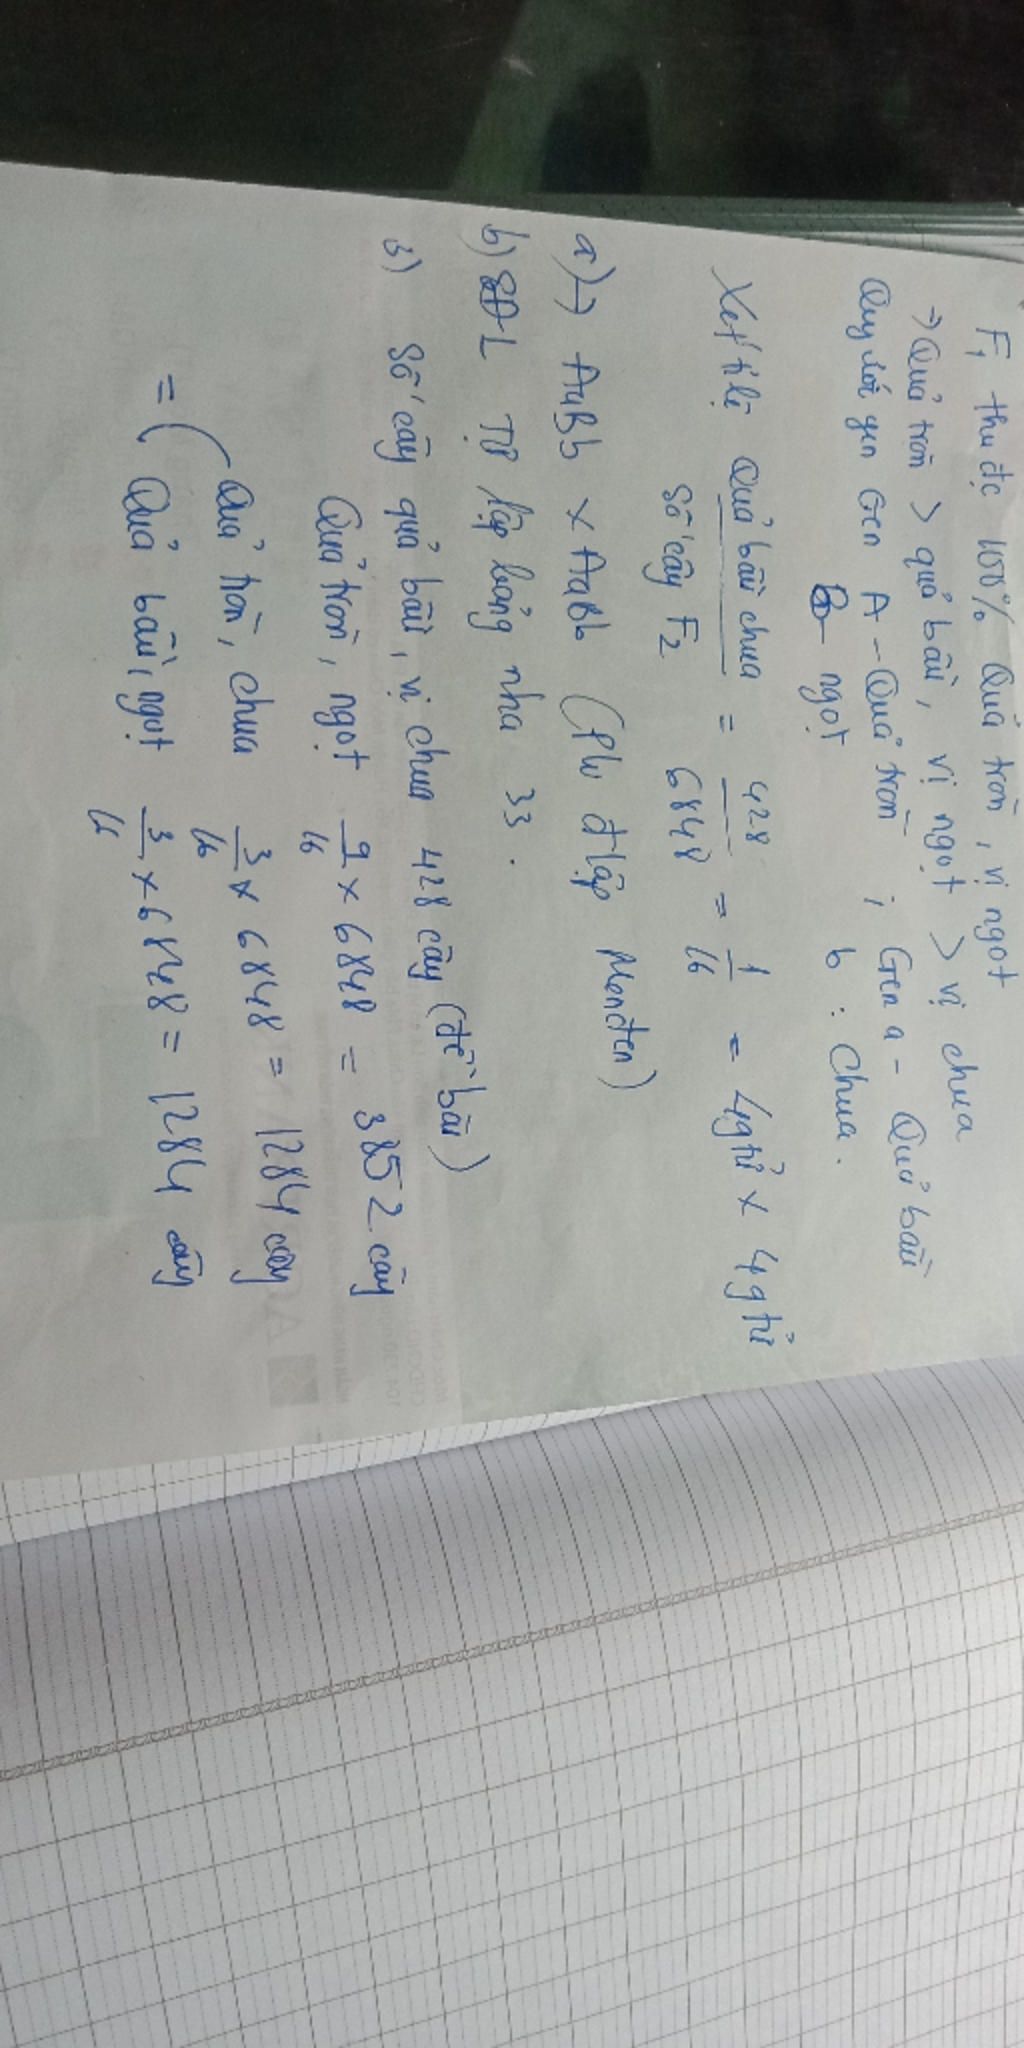 F₁ thu đc 100% Quả tròn, vị ngọt
→ Quả tròn > quả bầu, vị ngọt > vị chua
Quy ước gen Gen A - Quả tròn ; Gen a - Quả bầu
B - ngọt b : Chua.
Xét tỉ lệ Quả bầu chua / Số cây F₂ = 428 / 6848 = 1/16 = 4 gtử × 4 gtử
a) → AaBb × AaBb (Plđlập Menđen)
b) SĐL Tự lập bảng nha 33.
3) Số cây quả bầu, vị chua 428 cây (đề bài)
Quả tròn, ngọt 9/16 × 6848 = 3852 cây
= ( Quả tròn, chua 3/16 × 6848 = 1284 cây
Quả bầu, ngọt 3/16 × 6848 = 1284 cây